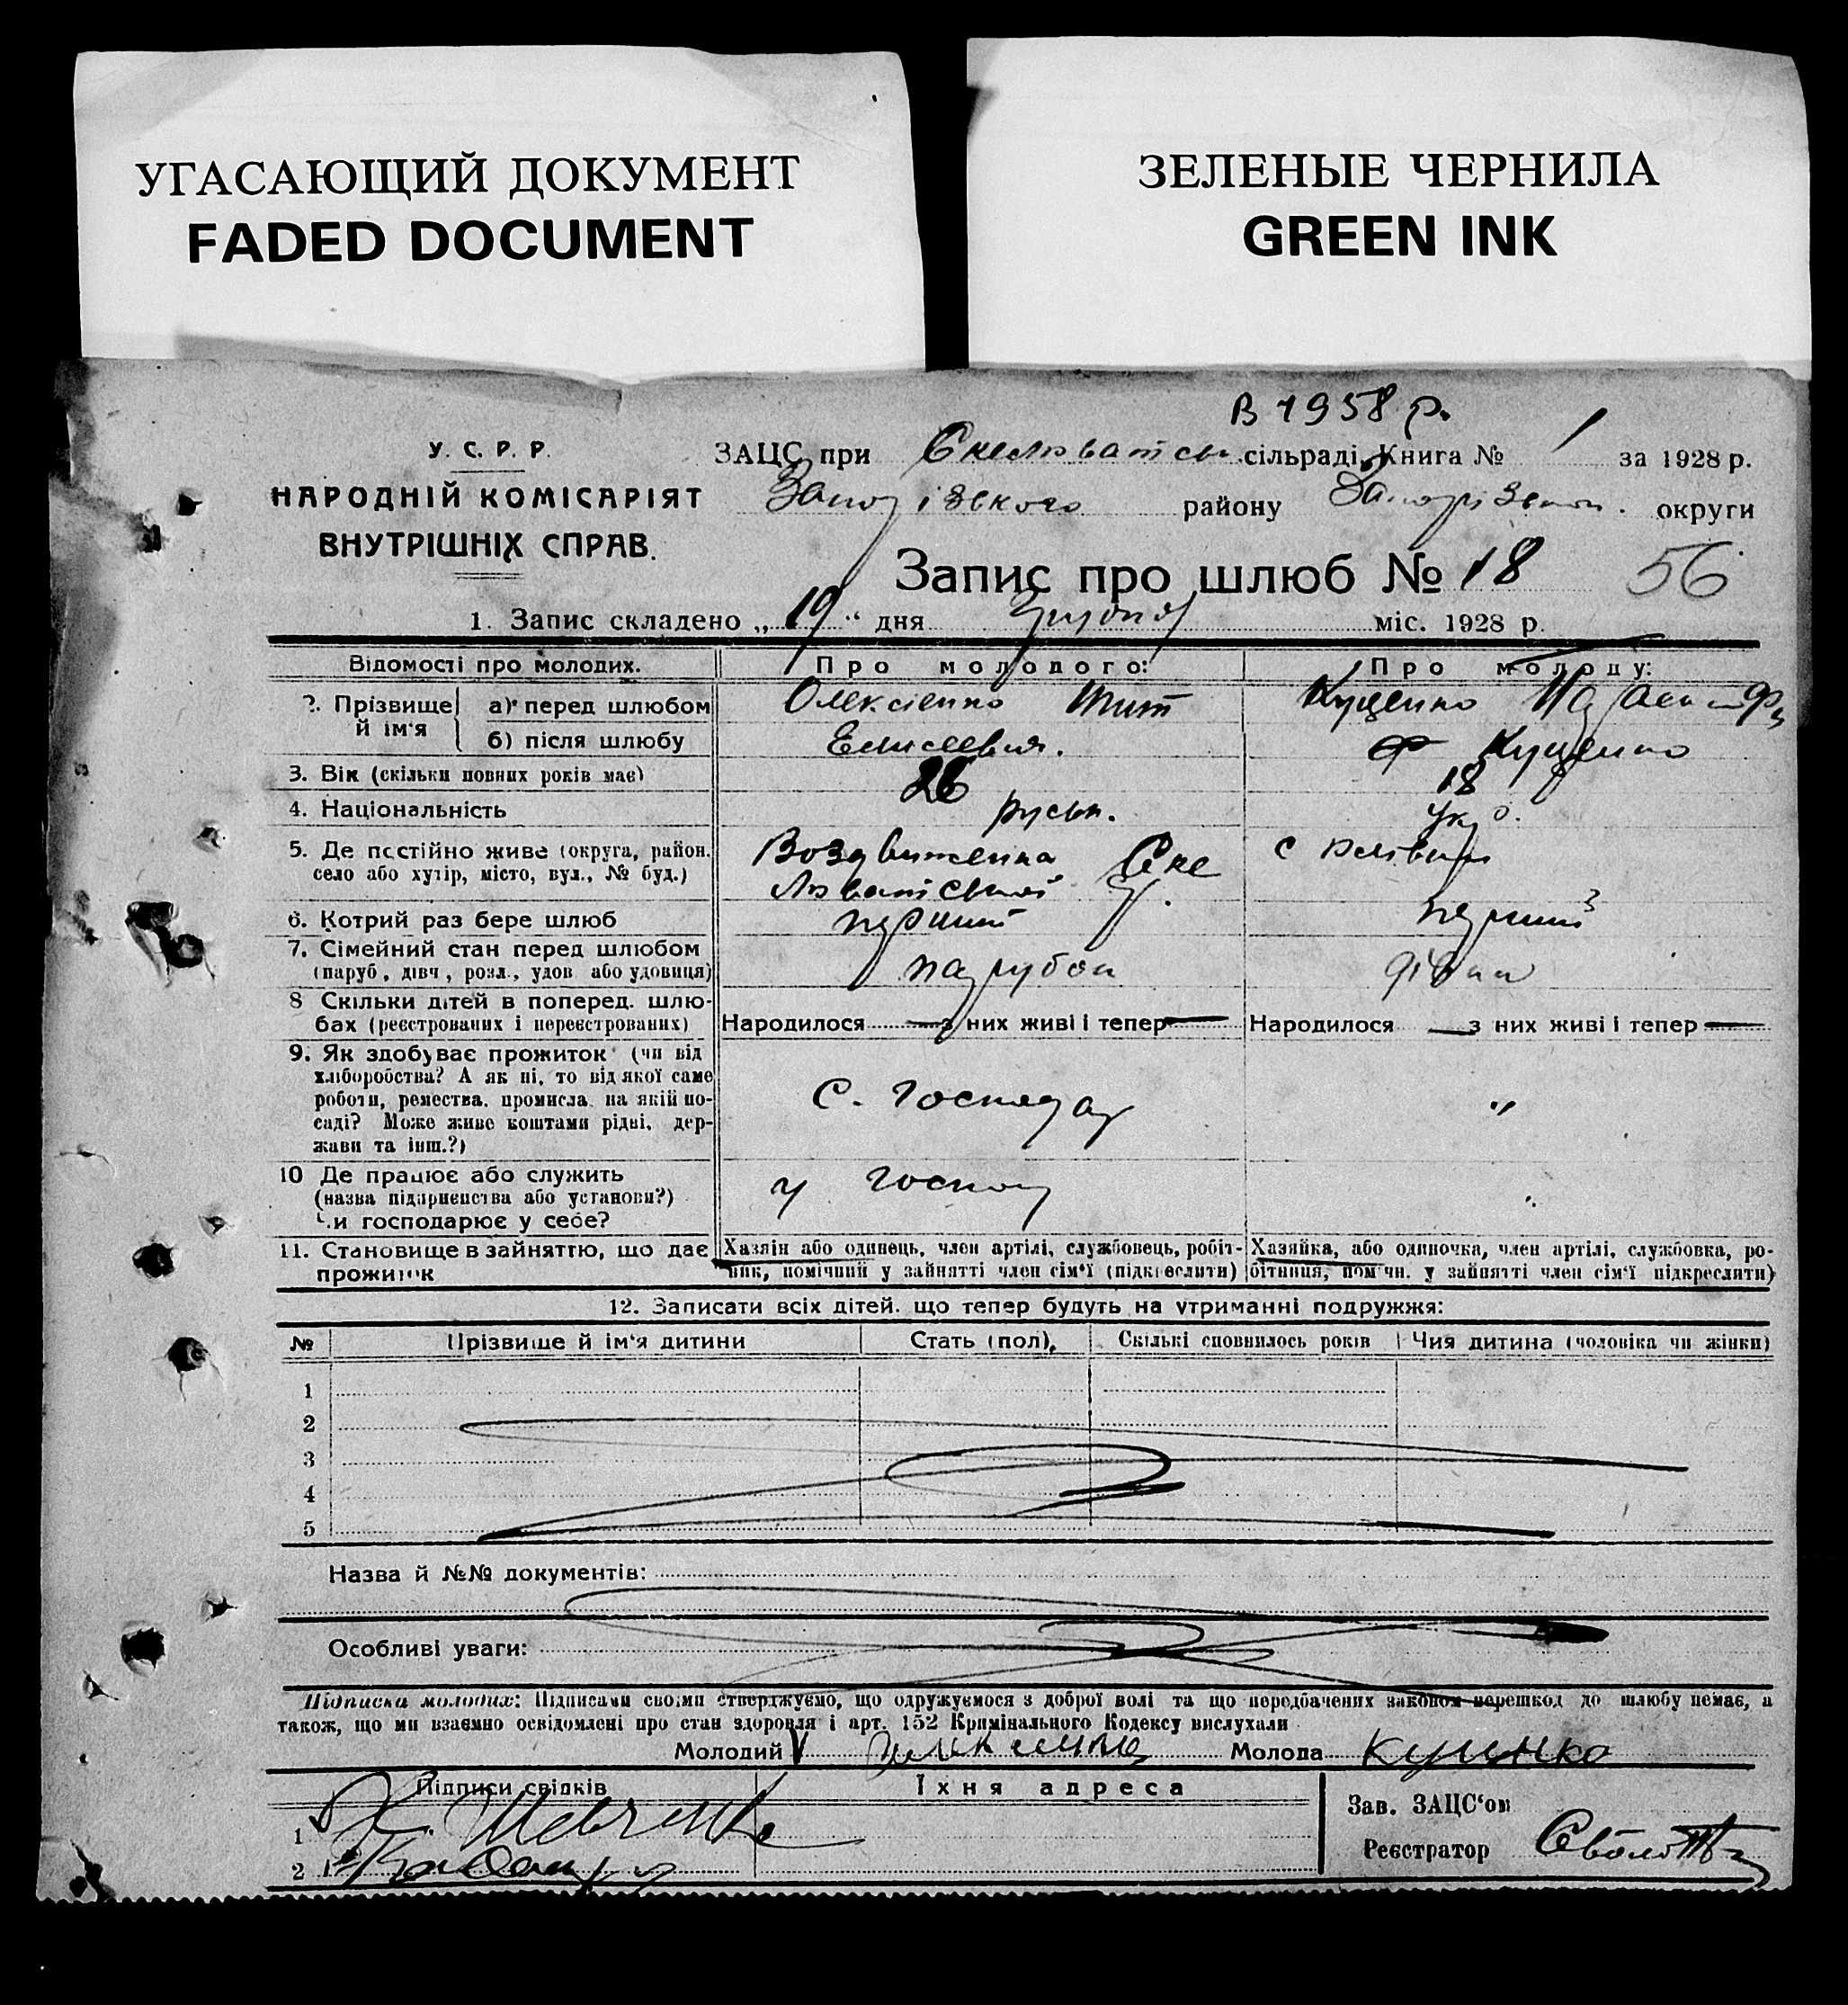 УГАСАЮЩИЙ ДОКУМЕНТ
FADED DOCUMENT
ЗЕЛЕНЫЕ ЧЕРНИЛА
GREEN INK
В 1958 р.
У. С. Р. Р.
НАРОДНІЙ КОМІСАРІЯТ
ВНУТРІШНІХ СПРАВ.
ЗАЦС при Скелюватськ. сільраді, Книга № 1 за 1928 р.
району округи
Запис про шлюб № 18 56
1. Запис складено „ 19 “ дня міс. 1928 р.
Відомості про молодих. Про молодого: Про молоду:
2. Прізвище й ім‘я а) перед шлюбом Олексієнко Тит Кущенко
б) після шлюбу Елисеевич. Кущенко
3. Вік (скільки повних років має) 26 18
4. Національність руськ. Укр.
5. Де постійно живе (округа, район, Воздвиженка Ске
село або хутір, місто, вул., № буд.) люватської
6. Котрий раз бере шлюб перший перший
7. Сімейний стан перед шлюбом
(паруб., дівч., розл., удов. або удовиця) парубок
8 Скільки дітей в поперед. шлю-
бах (реєстрованих і нереєстрованих) Народилося — з них живі і тепер — Народилося — з них живі і тепер —
9. Як здобуває прожиток (чи від
хліборобства? А як ні, то від якої саме
роботи, ремества, промисла, на якій по-
саді? Може живе коштами рідні, дер-
жави та інш.?)
С. господар "
10 Де працює або служить
(назва підприємства або установи?)
Чи господарює у себе?
у господ
11. Становище в зайняттю, що дає
прожиток
Хазяїн або одинець, член артілі, службовець, робіт-
ник, помічний у зайнятті член сім‘ї (підкреслити)
Хазяйка, або одиночка, член артілі, службовка, ро-
бітниця, помічн. у зайнятті член сім‘ї підкреслити)
12. Записати всіх дітей, що тепер будуть на утриманні подружжя:
№ Прізвище й ім‘я дитини Стать (пол), Скількі сповнилось років Чия дитина (чоловіка чи жінки)
1
2
3
4
5
Назва й №№ документів:
Особливі уваги:
Підписка молодих: Підписами своїми стверджуємо, що одружуємося з доброї волі та що передбачених законом перешкод до шлюбу немає, а
також, що ми взаємно освідомлені про стан здоровля і арт. 152 Кримінального Кодексу вислухали
Молодий Молода
Підписи свідків Їхня адреса
Зав. ЗАЦС‘ом
1
Реєстратор
2